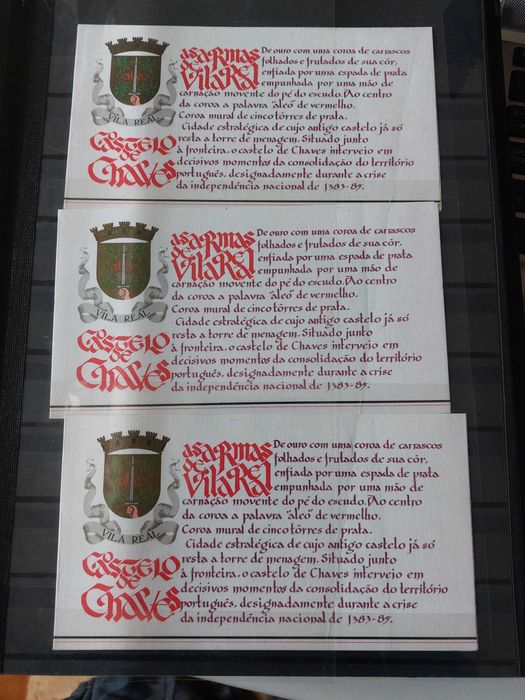 As Armas
de
Vila Real
De ouro com uma coroa de carrascos
folhados e frutados de sua côr,
enfiada por uma espada de prata
empunhada por uma mão de
carnação movente do pé do escudo. Ao centro
da coroa a palavra "aleo" de vermelho.
Coroa mural de cinco tôrres de prata.
VILA REAL
Castelo
de
Chaves
Cidade estratégica de cujo antigo castelo já só
resta a torre de menagem. Situado junto
à fronteira, o castelo de Chaves interveio em
decisivos momentos da consolidação do território
português, designadamente durante a crise
da independência nacional de 1383-85.
As Armas
de
Vila Real
De ouro com uma coroa de carrascos
folhados e frutados de sua côr,
enfiada por uma espada de prata
empunhada por uma mão de
carnação movente do pé do escudo. Ao centro
da coroa a palavra "aleo" de vermelho.
Coroa mural de cinco tôrres de prata.
VILA REAL
Castelo
de
Chaves
Cidade estratégica de cujo antigo castelo já só
resta a torre de menagem. Situado junto
à fronteira, o castelo de Chaves interveio em
decisivos momentos da consolidação do território
português, designadamente durante a crise
da independência nacional de 1383-85.
As Armas
de
Vila Real
De ouro com uma coroa de carrascos
folhados e frutados de sua côr,
enfiada por uma espada de prata
empunhada por uma mão de
carnação movente do pé do escudo. Ao centro
da coroa a palavra "aleo" de vermelho.
Coroa mural de cinco tôrres de prata.
VILA REAL
Castelo
de
Chaves
Cidade estratégica de cujo antigo castelo já só
resta a torre de menagem. Situado junto
à fronteira, o castelo de Chaves interveio em
decisivos momentos da consolidação do território
português, designadamente durante a crise
da independência nacional de 1383-85.